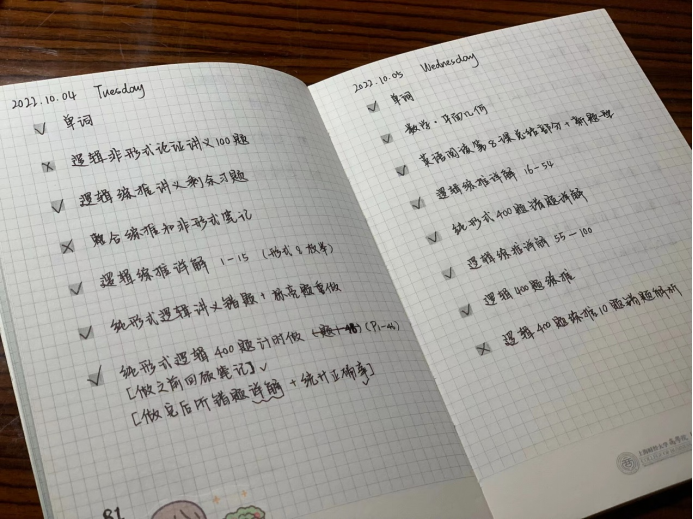 2022.10.04 Tuesday
✓ 单词
× 逻辑非形式论证讲义100题
✓ 逻辑综推讲义剩余习题
× 整合综推和非形式笔记
✓ 逻辑综推详解 1-15 (形式8放弃)
✓ 纯形式逻辑讲义错题+标亮题重做
✓ 纯形式逻辑400题计时做 (P1-46)
[做之前回顾笔记]✓
[做完后听错题详解+统计正确率]
81
2022.10.05 Wednesday
✓ 单词
✓ 数学·平面几何
✓ 英语阅读第8课总结部分+新题型
✓ 逻辑综推详解 16-54
✓ 纯形式400题错题详解
✓ 逻辑综推详解 55-100
✓ 逻辑400题综推
× 逻辑400题综推10题错题解析
上海财经大学商学院